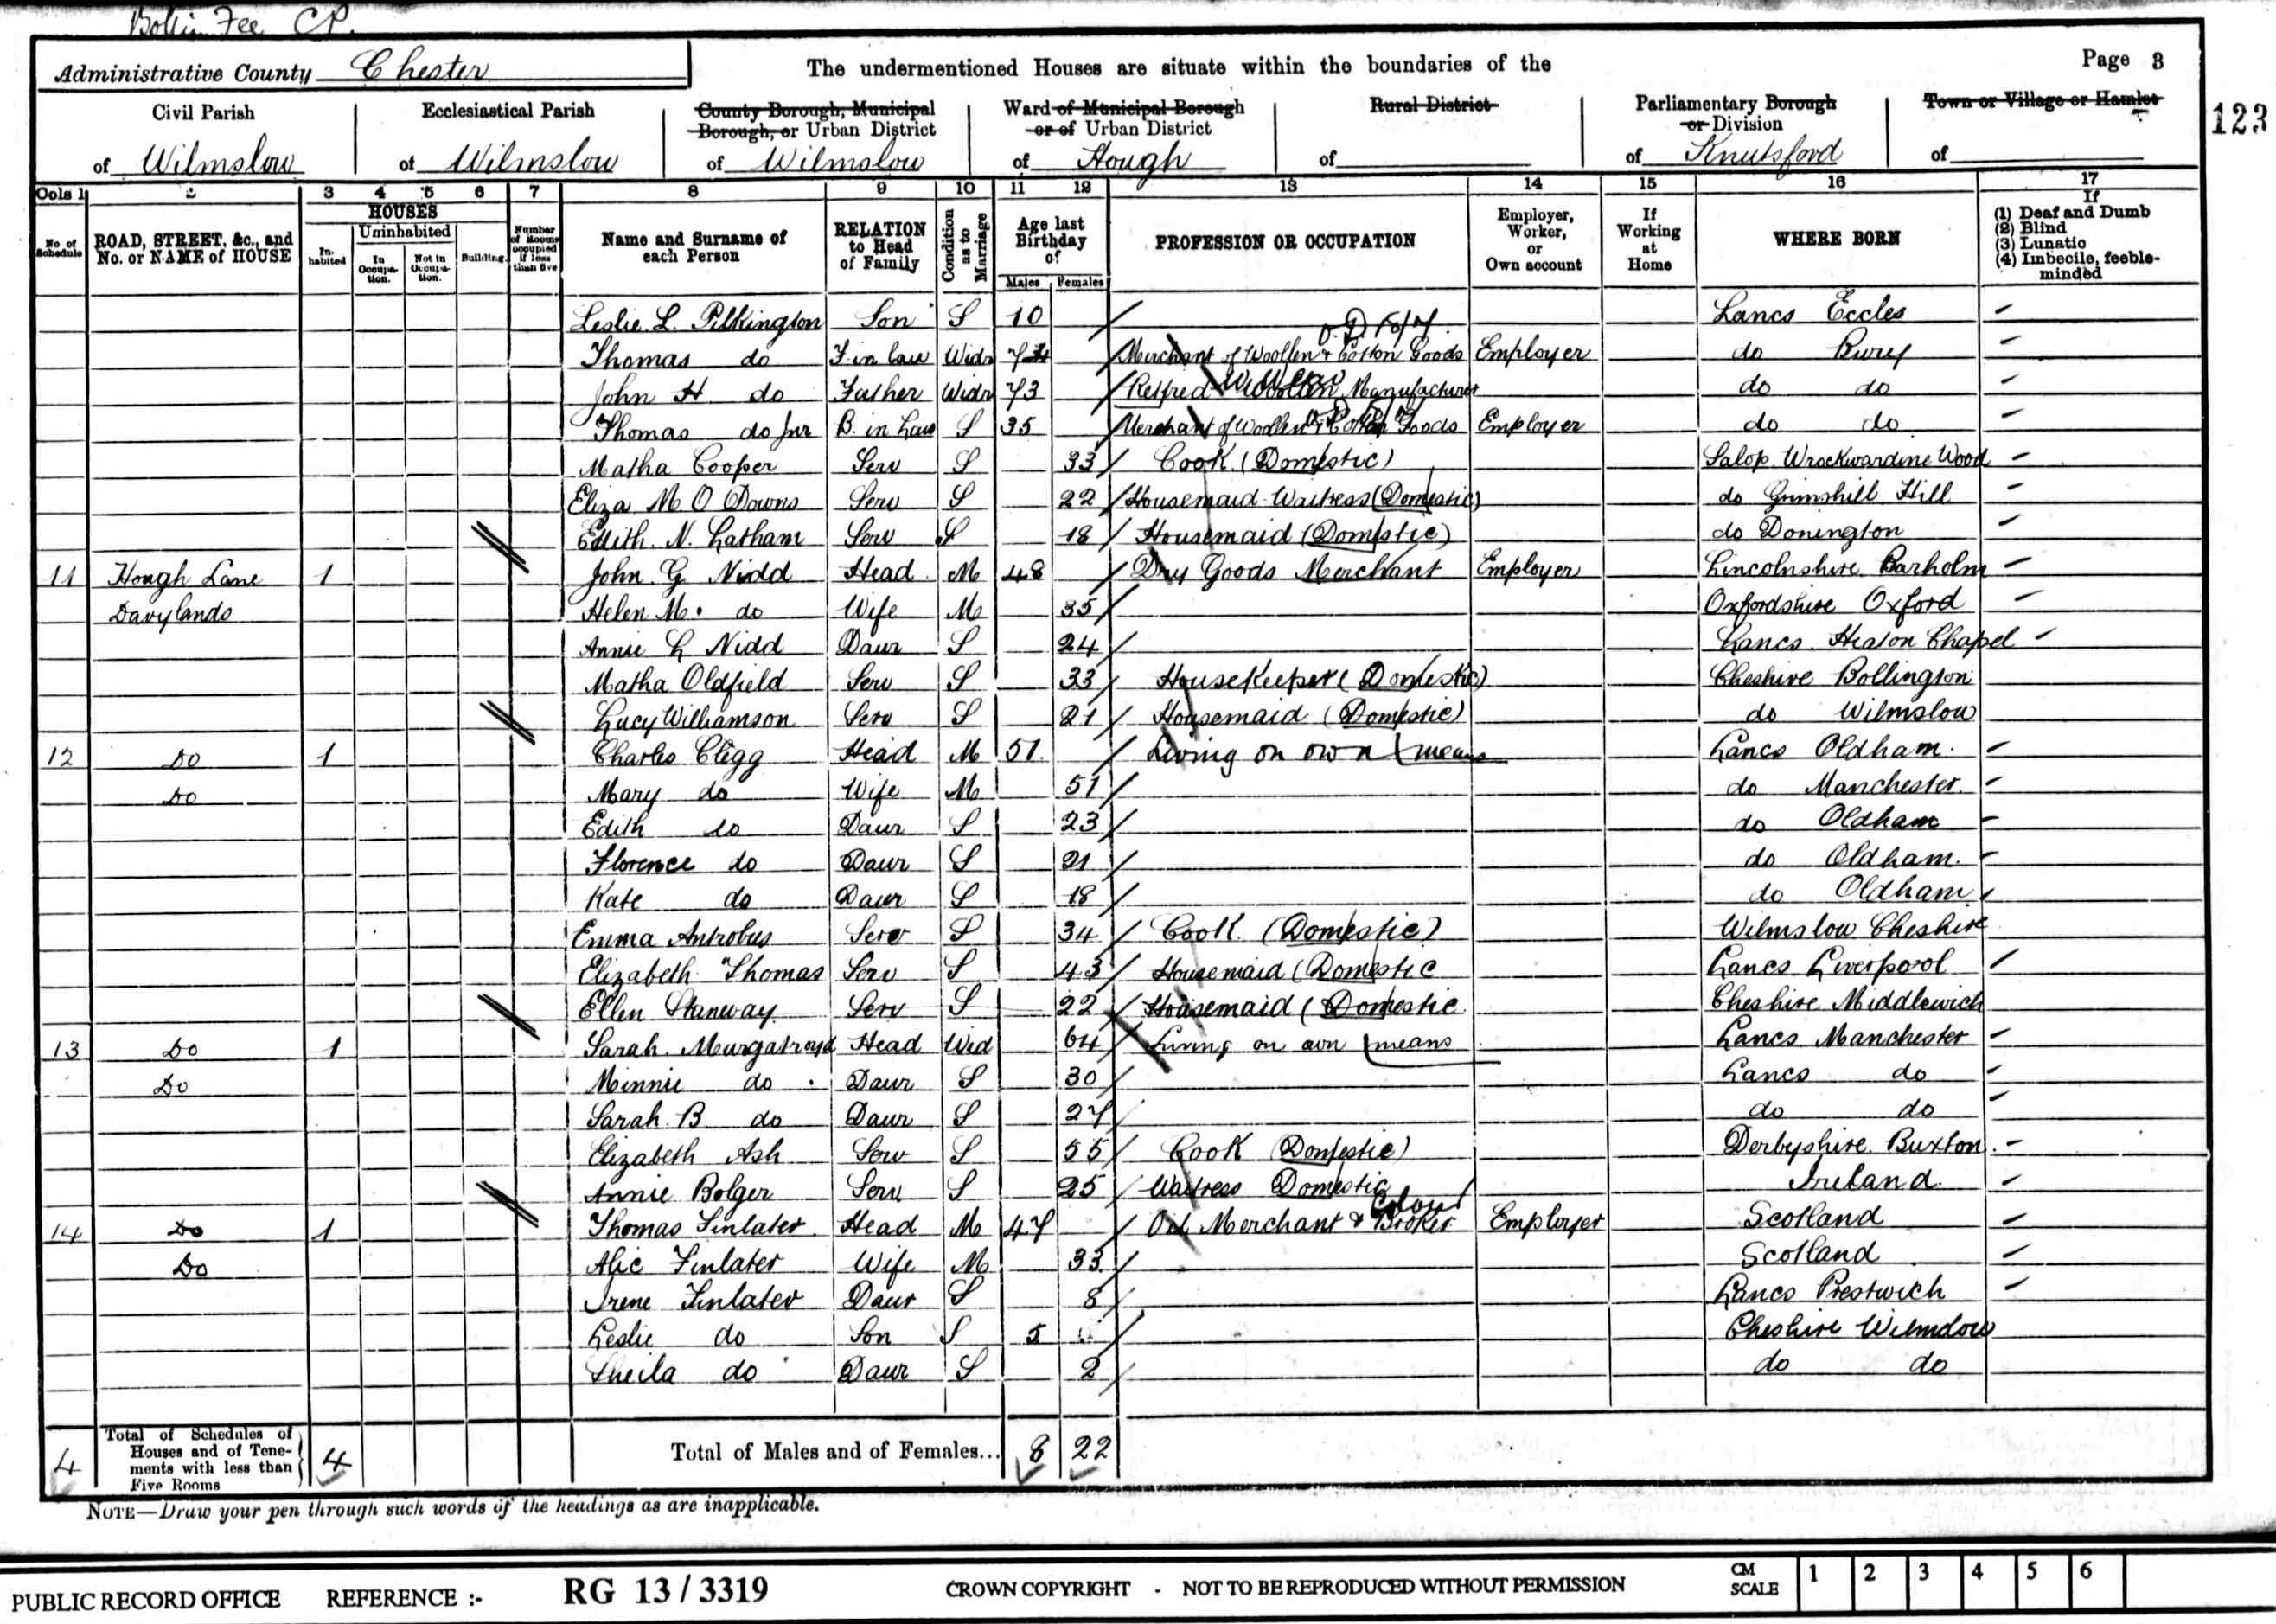 Bollin Fee C.P.
Administrative County Chester
The undermentioned Houses are situate within the boundaries of the
Page 3
123
Civil Parish of Wilmslow
Ecclesiastical Parish of Wilmslow
County Borough, Municipal Borough, or Urban District of Wilmslow
Ward of Municipal Borough or of Urban District of Hough
Rural District of
Parliamentary Borough or Division of Knutsford
Town or Village or Hamlet of
Cols 1 2 3 4 5 6 7 8 9 10 11 12 13 14 15 16 17
No. of Schedule
ROAD, STREET, &c., and No. or NAME of HOUSE
HOUSES
Inhabited
Uninhabited
In Occupation.
Not in Occupation.
Building
Number of Rooms occupied if less than five
Name and Surname of each Person
RELATION to Head of Family
Condition as to Marriage
Age last Birthday of
Males Females
PROFESSION OR OCCUPATION
Employer, Worker, or Own account
If Working at Home
WHERE BORN
If
(1) Deaf and Dumb
(2) Blind
(3) Lunatic
(4) Imbecile, feeble-minded
Leslie L. Pilkington Son S 10 Lancs Eccles
Thomas do F. in law Widr Merchant of Woollen & Cotton Goods Employer do Bury
John H do Father Widr 73 Retired Woollen Manufacturer do do
Thomas do Jnr B. in Law S 35 Merchant of Woollen & Cotton Goods Employer do do
Matha Cooper Serv S 33 Cook (Domestic) Salop Wrockwardine Wood
Eliza M O Downs Serv S 22 Housemaid Waitress (Domestic) do Grinshill Hill
Edith N. Latham Serv S 18 Housemaid (Domestic) do Donington
11 Hough Lane 1 John G Nidd Head M 48 Dry Goods Merchant Employer Lincolnshire Barholm
Davylands Helen M. do Wife M 35 Oxfordshire Oxford
Annie L Nidd Daur S 24 Lancs Heaton Chapel
Matha Oldfield Serv S 33 Housekeeper (Domestic) Cheshire Bollington
Lucy Williamson Serv S 21 Housemaid (Domestic) do Wilmslow
12 Do 1 Charles Clegg Head M 51 Living on own means Lancs Oldham
Do Mary do Wife M 51 do Manchester
Edith do Daur S 23 do Oldham
Florence do Daur S 21 do Oldham
Kate do Daur S 18 do Oldham
Emma Antrobus Serv S 34 Cook (Domestic) Wilmslow Cheshire
Elizabeth Thomas Serv S 43 Housemaid (Domestic Lancs Liverpool
Ellen Stanway Serv S 22 Housemaid (Domestic Cheshire Middlewich
13 Do 1 Sarah Murgatroyd Head Wid 64 Living on own means Lancs Manchester
Do Minnie do Daur S 30 Lancs do
Sarah B do Daur S 27 do do
Elizabeth Ash Serv S 55 Cook (Domestic) Derbyshire Buxton
Annie Bolger Serv S 25 Waitress Domestic Ireland
14 Do 1 Thomas Finlater Head M 47 Oil Merchant & Colour Broker Employer Scotland
Do Alic Finlater Wife M 33 Scotland
Irene Finlater Daur S 8 Lancs Prestwich
Leslie do Son S 5 Cheshire Wilmslow
Sheila do Daur S 2 do do
4 Total of Schedules of Houses and of Tenements with less than Five Rooms 4 Total of Males and of Females... 8 22
NOTE—Draw your pen through such words of the headings as are inapplicable.
PUBLIC RECORD OFFICE REFERENCE :- RG 13 / 3319 CROWN COPYRIGHT - NOT TO BE REPRODUCED WITHOUT PERMISSION CM SCALE 1 2 3 4 5 6